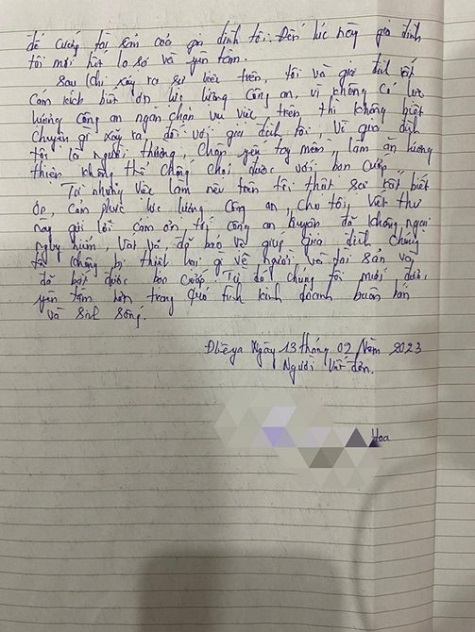 để cướp tài sản của gia đình tôi. Đến lúc này gia đình
tôi mới hết lo sợ và yên tâm.
Sau khi xảy ra sự việc trên, tôi và gia đình rất
cảm kích biết ơn lực lượng công an, vì không có lực
lượng công an ngăn chặn vụ việc trên thì không biết
chuyện gì xảy ra đối với gia đình tôi, vì gia đình
tôi là người thường, chân yếu tay mềm, làm ăn lương
thiện không thể chống chọi được với bọn cướp.
Từ những việc làm nêu trên tôi thật sự rất biết
ơn, cảm phục lực lượng công an, cho tôi viết thư
này gửi lời cảm ơn, tới công an huyện đã không ngại
nguy hiểm, vất vả, đã bảo vệ giúp gia đình chúng
tôi không bị thiệt hại gì về người và tài sản và
đã bắt được bọn cướp. Từ đó chúng tôi mới được
yên tâm hơn trong quá trình kinh doanh buôn bán
và sinh sống.
Ngày 13 tháng 02 năm 2023
Người viết đơn.
Hoa